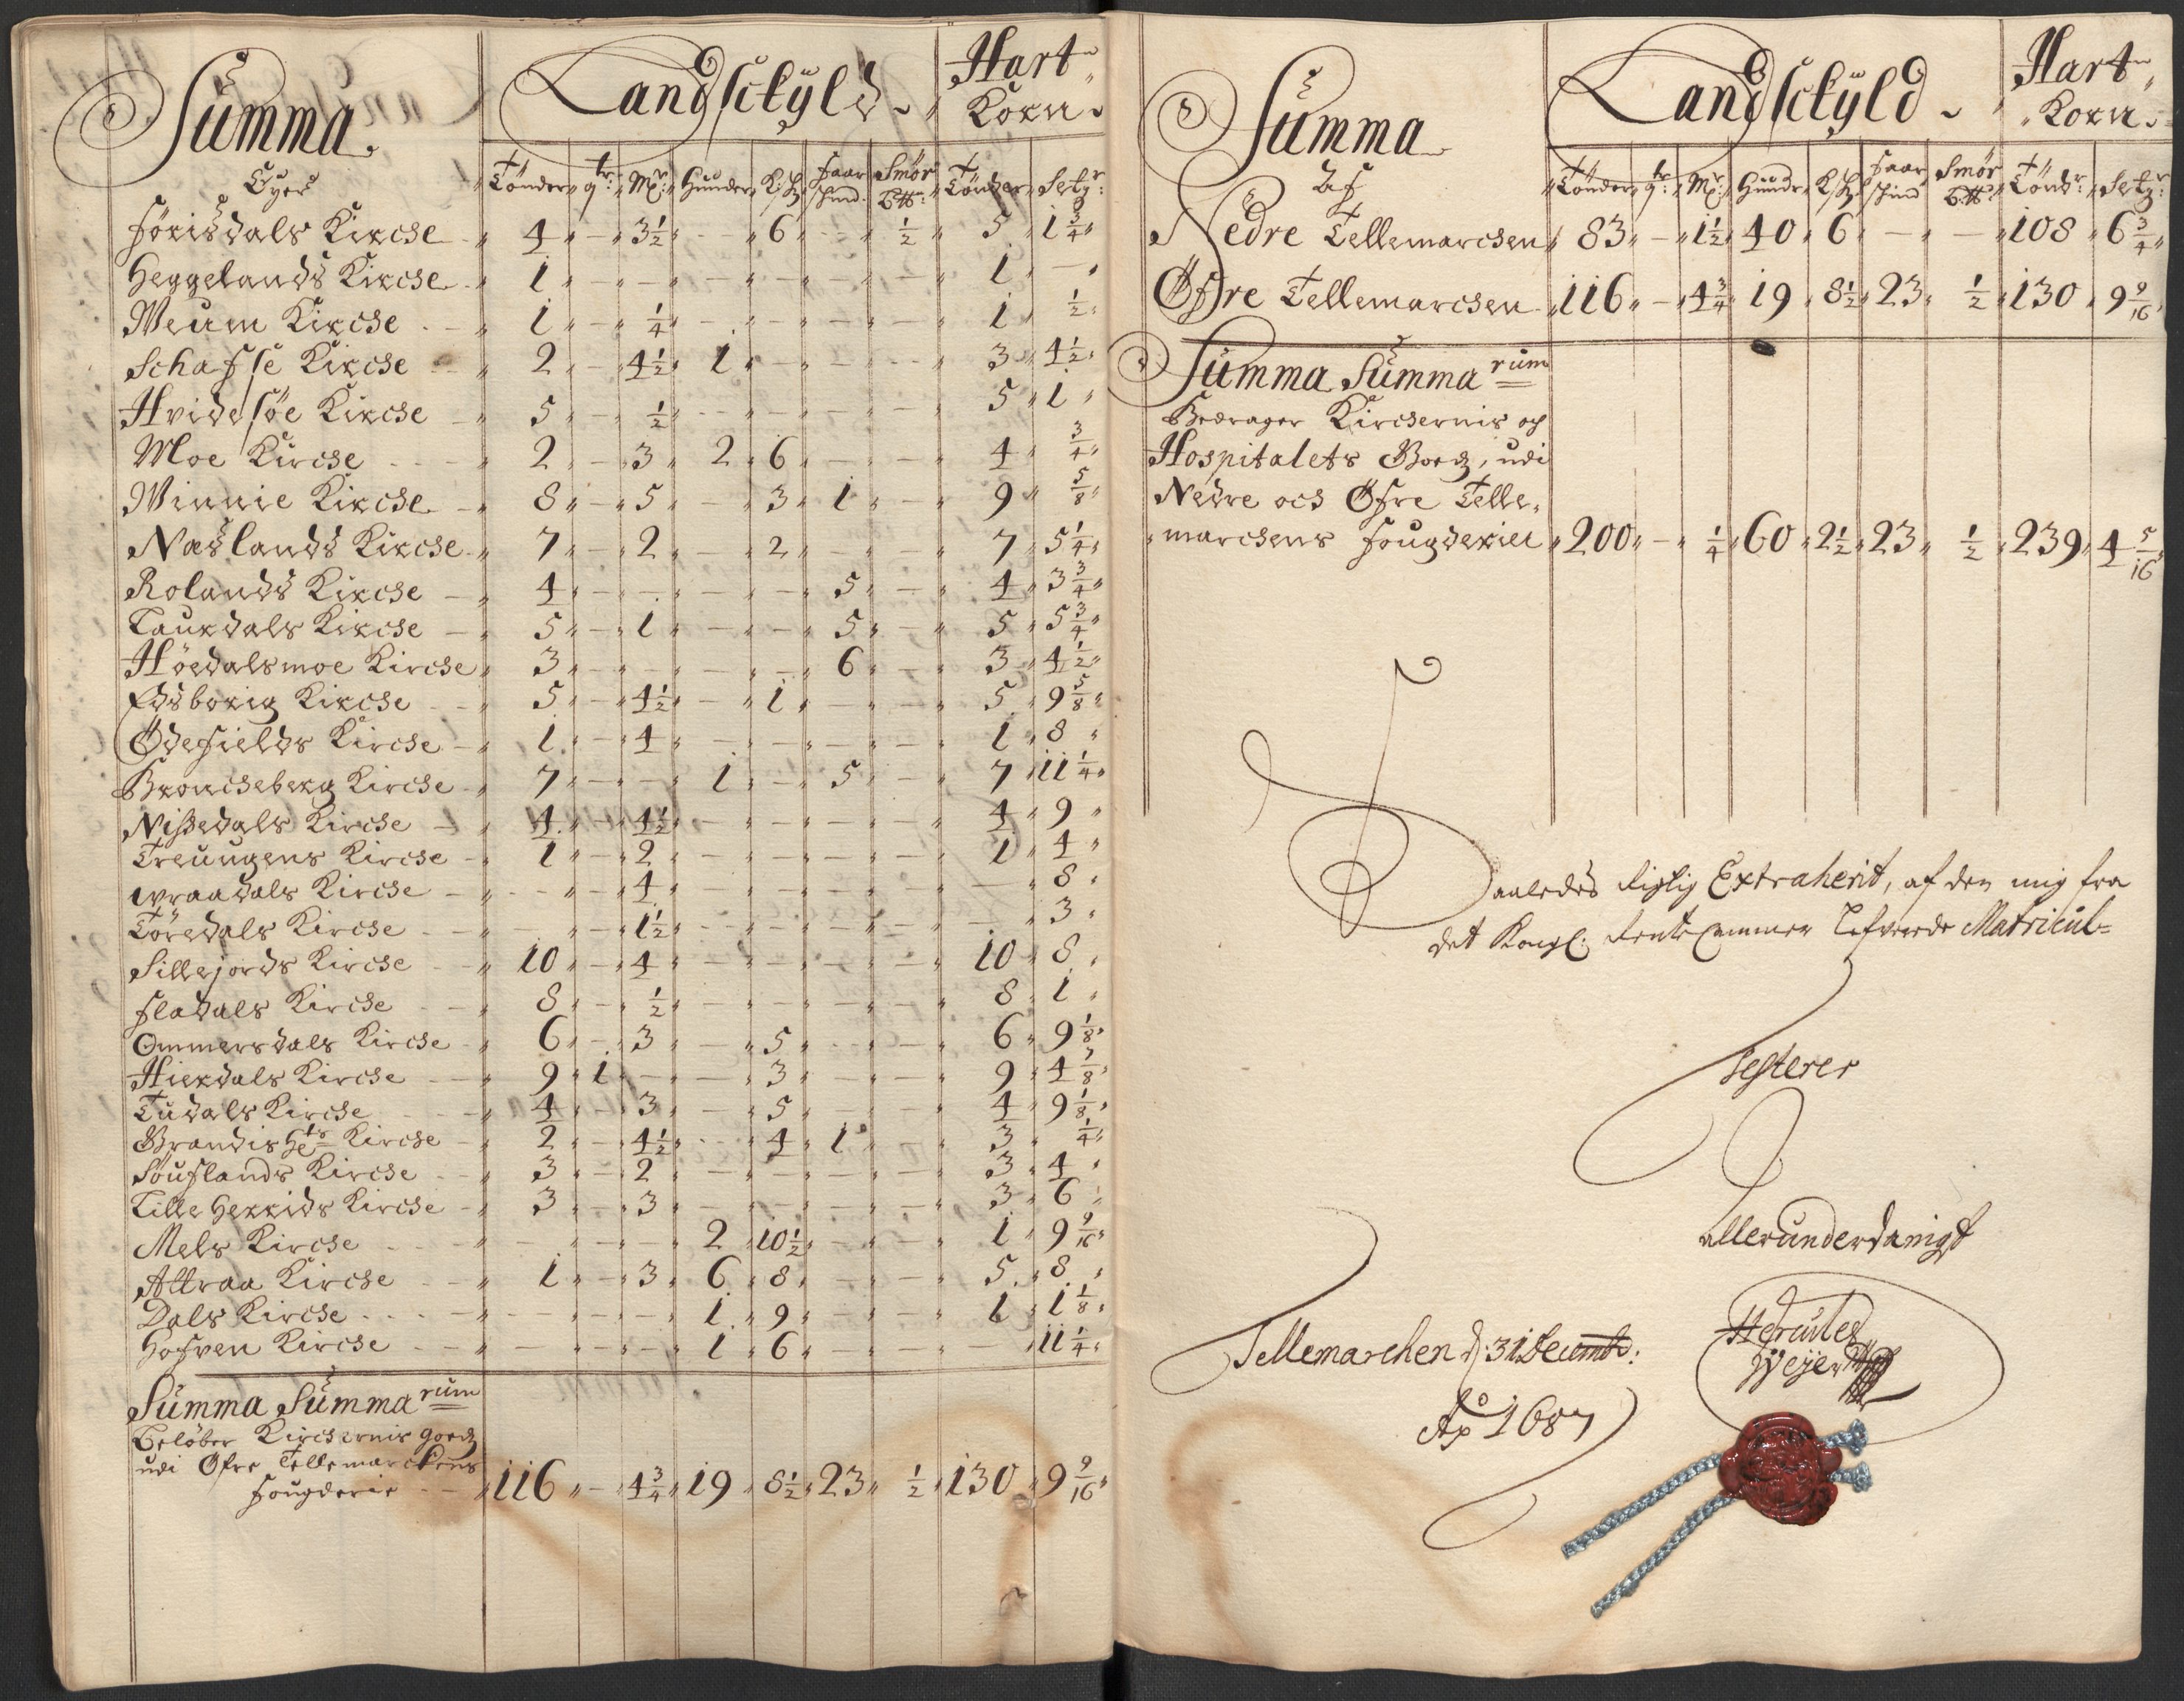 Summa
Landschyld
Hart
Korn
Ofver
Tönder qtr: Mlr: Hunder K:ß faar schind Smör B:tt: Tönder Setgr:
Förisdals Kirche 4 - 3½ - 6 - ½ 5 1¾
Heggelands Kirche 1 - - - - - - 1 -
Weum Kirche 1 - ¼ - - - - 1 ½
Schafse Kirche 2 - 4½ 1 - - - 3 4½
Hvidesöe Kirche 5 - ½ - - - - 5 1
Moe Kirche 2 - 3 2 6 - - 4 ¾
Winnie Kirche 8 - 5 - 3 1 - 9 ⅝
Næslands Kirche 7 - 2 - 2 - - 7 5¼
Rolands Kirche 4 - - - - 5 - 4 3¾
Laurdals Kirche 5 - 1 - - 5 - 5 5¾
Höedalsmoe Kirche 3 - - - - 6 - 3 4½
Edsborig Kirche 5 - 4½ - 1 - - 5 9⅝
Ödefields Kirche 1 - 4 - - - - 1 8
Broncheberg Kirche 7 - - 1 - 5 - 7 11¼
Nissedals Kirche 4 - 4½ - - - - 4 9
Treungens Kirche 1 - 2 - - - - 1 4
wraadals Kirche - - 4 - - - - - 8
Töredals Kirche - - 1½ - - - - - 3
Sillejords Kirche 10 - 4 - - - - 10 8
fladals Kirche 8 - ½ - - - - 8 1
Ommersdals Kirche 6 - 3 - 5 - - 6 9⅛
Hierdals Kirche 9 1 - - 3 - - 9 4⅞
Tudals Kirche 4 - 3 - 5 - - 4 9⅛
Brandis Kirche 2 - 4½ - 4 1 3 ¼
Söuflands Kirche 3 - 2 - - - - 3 4
Lille Herrids Kirche 3 - 3 - - - - 3 6
Mels Kirche - - - 2 10½ - - 1 9 9/16
Attraa Kirche 1 - 3 6 8 - - 5 8
Dals Kirche - - - 1 9 - - 1 1⅛
Hofven Kirche - - - 1 6 - - - 11¼
Summa Summarum
belöber Kirchernis goedz
udi Öfre Tellemarchens
fougderie 116 - 4¾ 19 8½ 23 ½ 130 9 9/16
Summa
Landschyld
Hart
Korn
Af
Tönder qtr: Mlr: Hundr K:ß faar schind Smör B:tt: Töndr: Setgr:
Nedre Tellemarchen 83 - 1½ 40 6 - - 108 6¾
Öfre Tellemarchen 116 - 4¾ 19 8½ 23 ½ 130 9 9/16
Summa Summarum
Bedrager Kirchernis og
Hospitalets Goedz, udi
Nedre och Öfre Telle,
marchens fougderier 200 - ¼ 60 2½ 23 ½ 239 4 5/16
Saaledes Rigtig Extraherit, af den mig fra
det Kongl: Rente Cammer Lefverede Matricul
Testerer
allerunderdanigst
Tellemarchen d: 31 Decemb:
Ao 1687
Hercules
Weyer